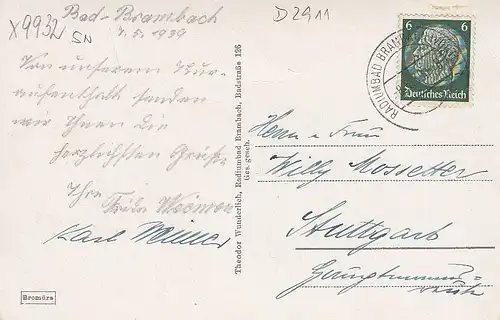 X9932
SN
D2911
Bad-Brambach
7.5.1939
Von unserem Kur-
aufenthalt senden
wir Ihnen die
herzlichsten Grüße.
Ihre
Karl
Bromüra
Theodor Wunderlich, Radiumbad Brambach, Badstraße 126
Ges. gesch.
6 6
Deutsches Reich
RADIUMBAD BRAMB
Herrn u. Frau
Willy Mossetter
Stuttgart